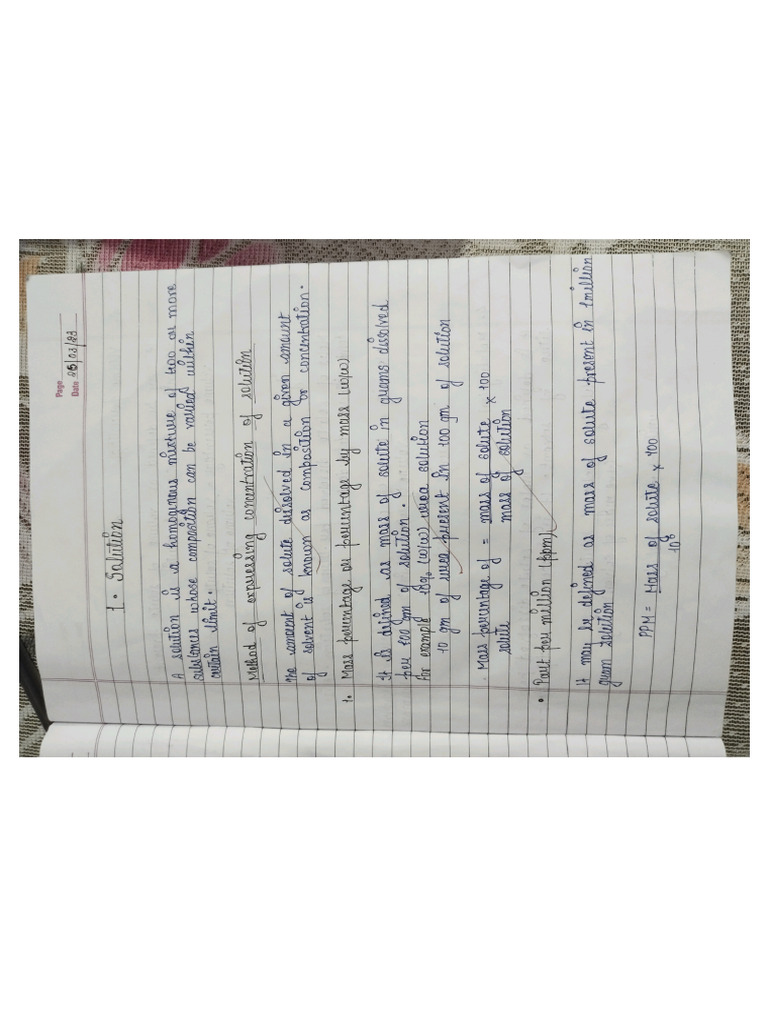 Page
Date 25/03/23
1. Solution
A solution is a homogenous mixture of two or more
substances whose composition can be varied within
certain limit.
Method of expressing concentration of solution
The amount of solute dissolved in a given amount
of solvent is known as composition or concentration.
1. Mass percentage or percentage by mass (w/w)
It is defined as mass of solute in grams dissolved
per 100 gm of solution.
For example 10% (w/w) urea solution
10 gm of urea present in 100 gm of solution
Mass percentage of = mass of solute × 100
solute mass of solution
• Part per million (ppm)
It may be defined as mass of solute present in 1million
gram solution
PPM = Mass of solute × 100
10⁶